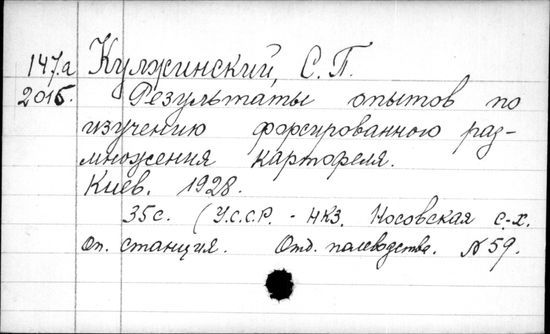 147.а Кулжинский, С. П.
2015. Результаты опытов по
изучению форсированного раз-
множения картофеля.
Киев. 1928.
35с. (У.С.С.Р. - НКЗ. Носовская с.-х.
Оп. станция. Отд. полеводства. N 59.